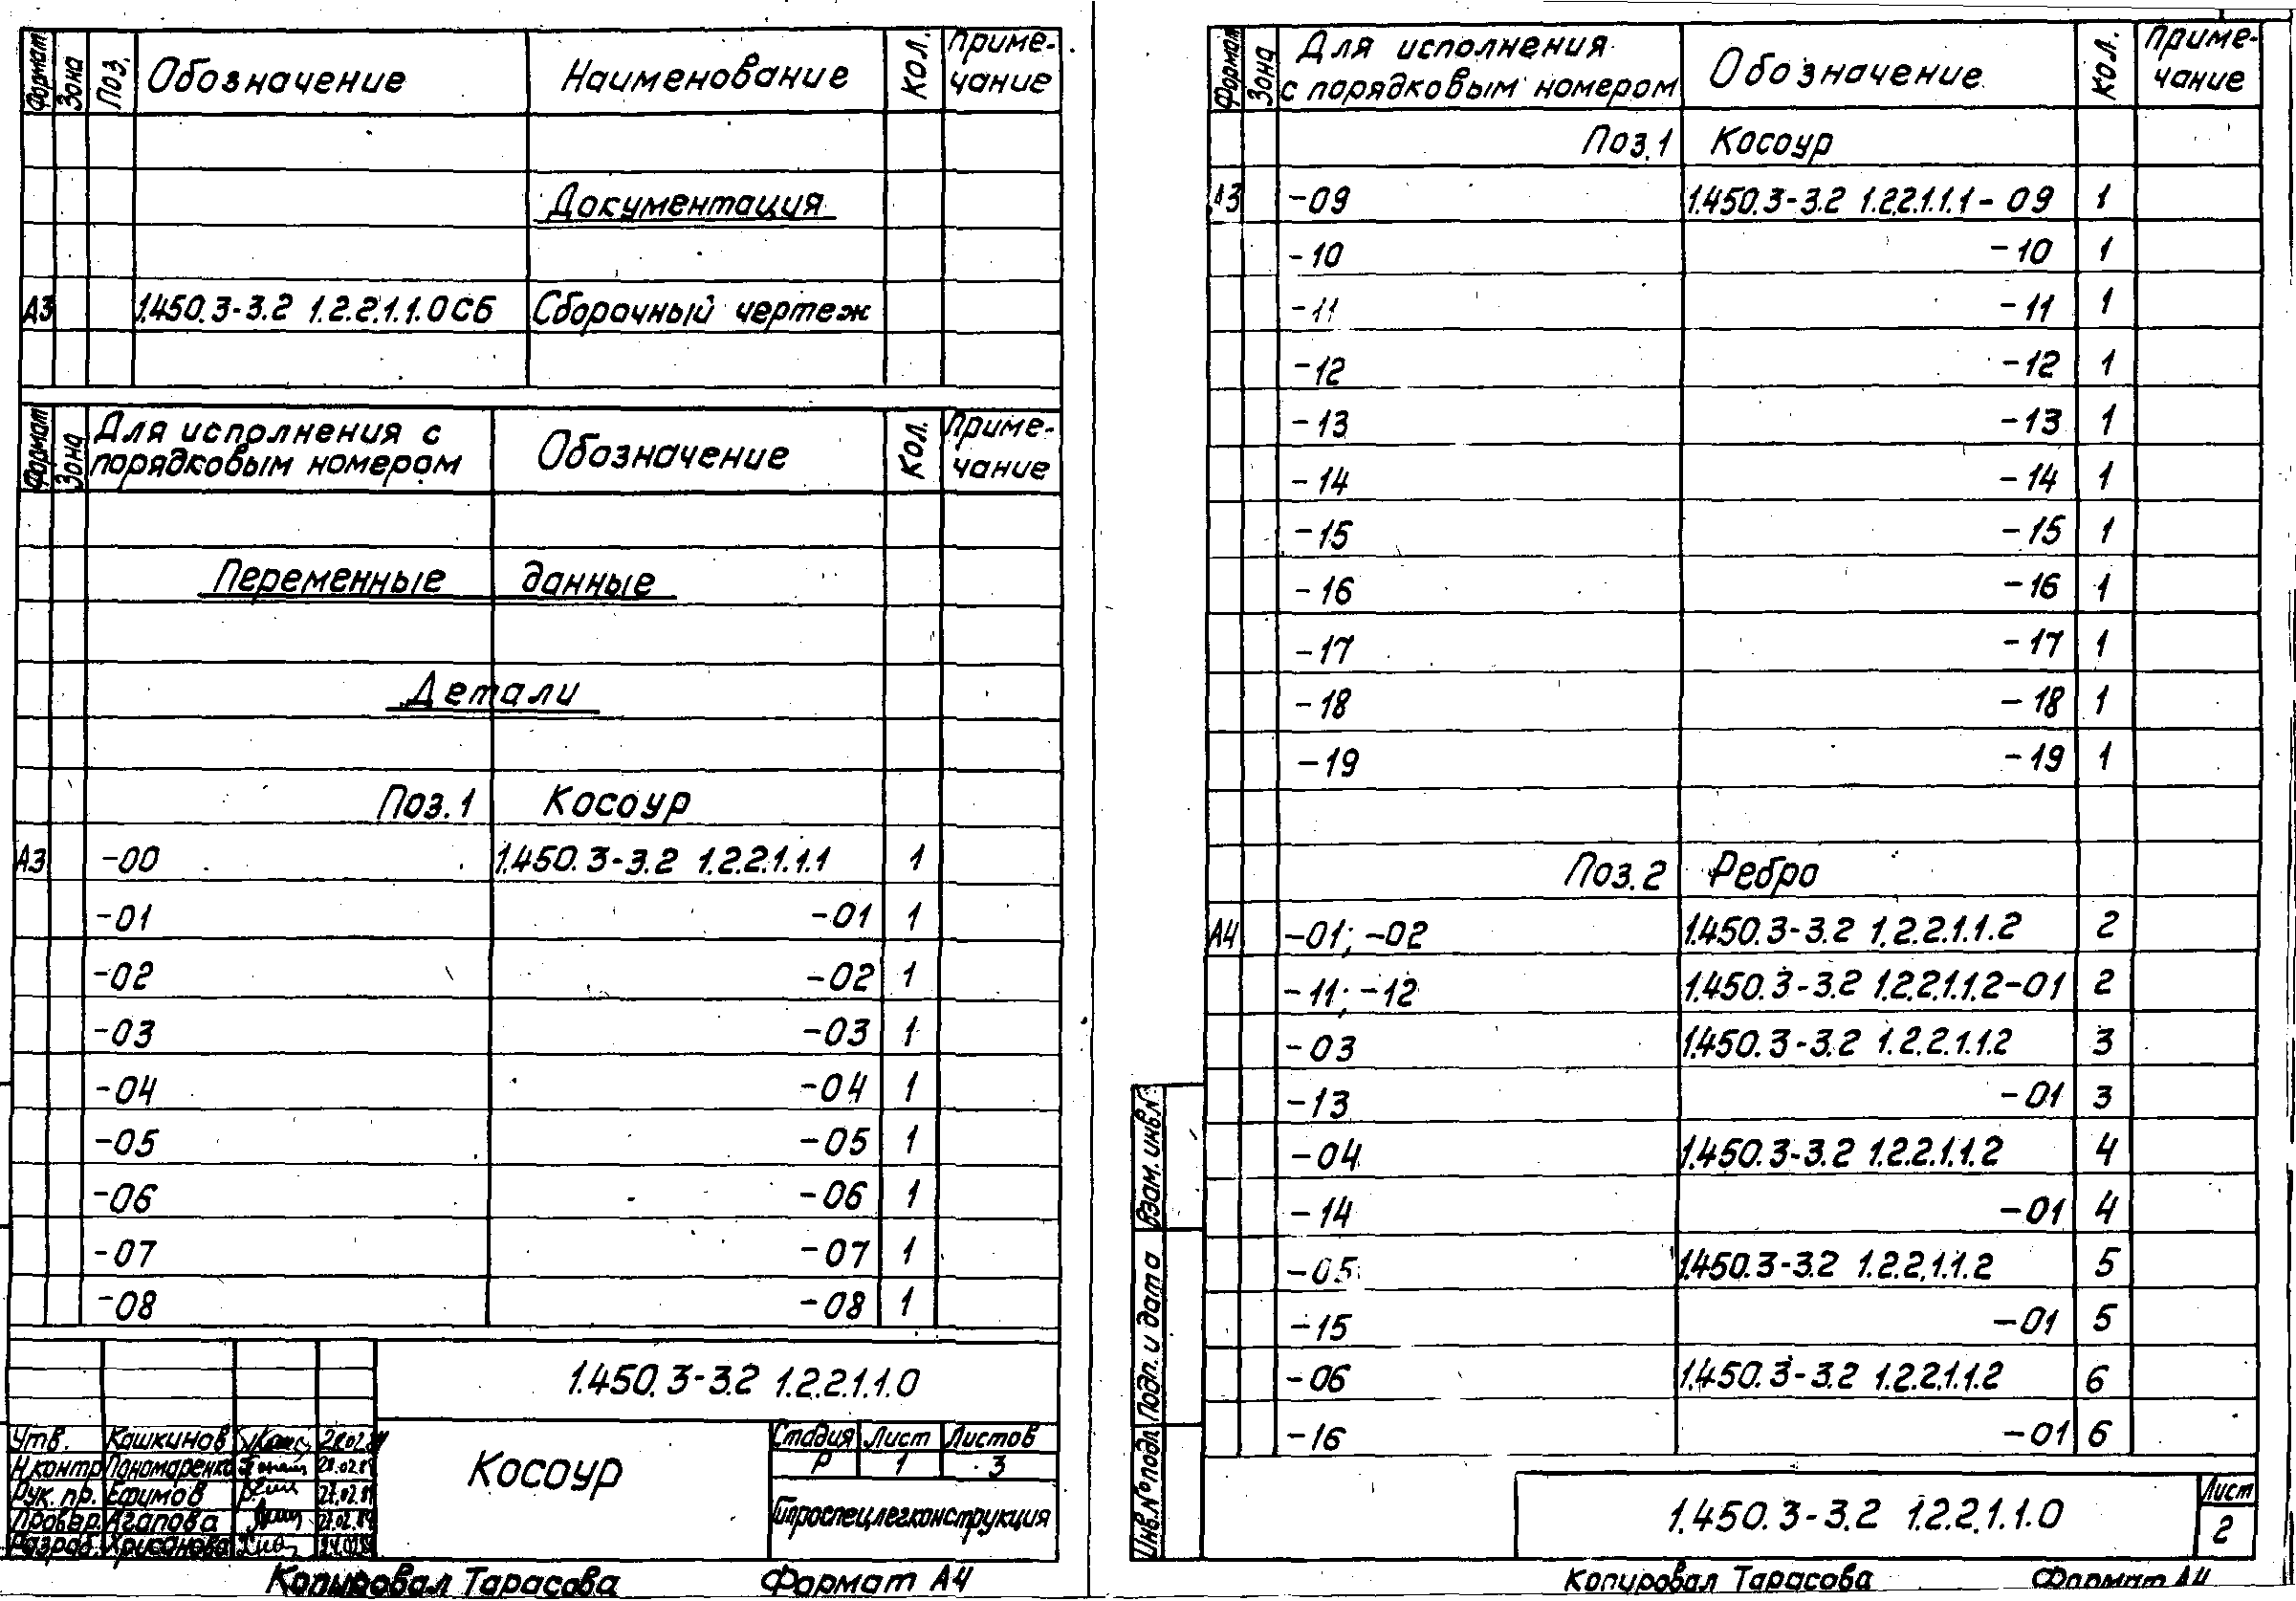 Формат Зона Поз. Обозначение Наименование Кол. Приме-
чание
Документация
А3 1.450.3-3.2 1.2.2.1.1.0СБ Сборочный чертеж
Формат Зона Для исполнения с Обозначение Кол. Приме-
порядковым номером чание
Переменные данные
Детали
Поз.1 Косоур
А3 -00 1.450.3-3.2 1.2.2.1.1.1 1
-01 -01 1
-02 -02 1
-03 -03 1
-04 -04 1
-05 -05 1
-06 -06 1
-07 -07 1
-08 -08 1
1.450.3-3.2 1.2.2.1.1.0
Утв. Кашкинов
Н.контр Пономаренко
Рук. пр. Ефимов
Провер. Агапова
Разраб. Хрисанова
Косоур
Стадия Лист Листов
Р 1 3
Гипроспецлегконструкция
Копировал Тарасова Формат А4
Формат Зона Для исполнения Обозначение Кол. Приме-
с порядковым номером чание
Поз.1 Косоур
А3 -09 1.450.3-3.2 1.2.2.1.1.1-09 1
-10 -10 1
-11 -11 1
-12 -12 1
-13 -13 1
-14 -14 1
-15 -15 1
-16 -16 1
-17 -17 1
-18 -18 1
-19 -19 1
Поз.2 Ребро
А4 -01; -02 1.450.3-3.2 1.2.2.1.1.2 2
-11; -12 1.450.3-3.2 1.2.2.1.1.2-01 2
-03 1.450.3-3.2 1.2.2.1.1.2 3
-13 -01 3
-04 1.450.3-3.2 1.2.2.1.1.2 4
-14 -01 4
-05 1.450.3-3.2 1.2.2.1.1.2 5
-15 -01 5
-06 1.450.3-3.2 1.2.2.1.1.2 6
-16 -01 6
Взам. инв.№
Подп. и дата
Инв.№ подл.
1.450.3-3.2 1.2.2.1.1.0
Лист
2
Копировал Тарасова Формат А4